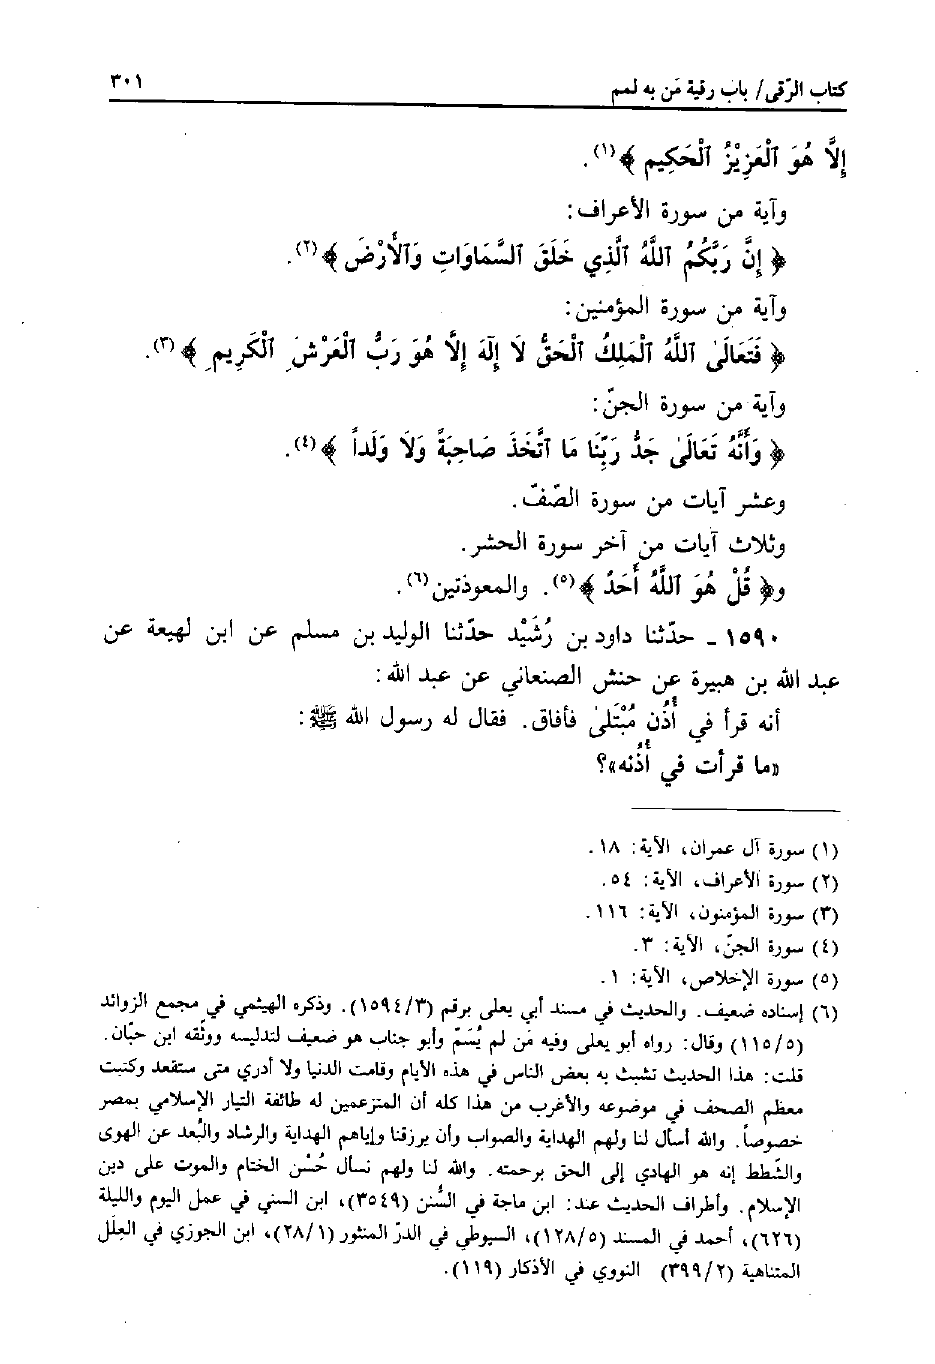 كتاب الرّقى/ باب رقية مَن به لمم ٣٠١
إِلَّا هُوَ ٱلْعَزِيْزُ ٱلْحَكِيم ﴾(١).
وآية من سورة الأعراف:
﴿ إِنَّ رَبَّكُمُ ٱللَّهُ ٱلَّذِي خَلَقَ ٱلسَّمَاوَاتِ وَٱلأَرْضَ ﴾(٢).
وآية من سورة المؤمنين:
﴿ فَتَعَالَىٰ ٱللَّهُ ٱلْمَلِكُ ٱلْحَقُّ لَا إِلَهَ إِلَّا هُوَ رَبُّ ٱلْعَرْشِ ٱلْكَرِيمِ ﴾(٣).
وآية من سورة الجنّ:
﴿ وَأَنَّهُ تَعَالَىٰ جَدُّ رَبِّنَا مَا ٱتَّخَذَ صَاحِبَةً وَلَا وَلَداً ﴾(٤).
وعشر آيات من سورة الصّفّ.
وثلاث آيات من آخر سورة الحشر.
و﴿ قُلْ هُوَ ٱللَّهُ أَحَدُ ﴾(٥). والمعوذتين(٦).
١٥٩٠ - حدّثنا داود بن رُشَيْد حدّثنا الوليد بن مسلم عن ابن لهيعة عن
عبد الله بن هبيرة عن حنش الصنعاني عن عبد الله:
أنه قرأ في أُذُن مُبْتَلىٰ فأفاق. فقال له رسول الله ﷺ:
«ما قرأت في أُذُنه»؟
(١) سورة آل عمران، الآية: ١٨.
(٢) سورة الأعراف، الآية: ٥٤.
(٣) سورة المؤمنون، الآية: ١١٦.
(٤) سورة الجنّ، الآية: ٣.
(٥) سورة الإخلاص، الآية: ١.
(٦) إسناده ضعيف. والحديث في مسند أبي يعلى برقم (١٥٩٤/٣). وذكره الهيثمي في مجمع الزوائد
(١١٥/٥) وقال: رواه أبو يعلى وفيه مَن لم يُسَمّ وأبو جناب هو ضعيف لتدليسه ووثّقه ابن حبّان.
قلت: هذا الحديث تشبث به بعض الناس في هذه الأيام وقامت الدنيا ولا أدري متى ستقعد وكتبت
معظم الصحف في موضوعه والأغرب من هذا كله أن المتزعمين له طائفة التيار الإسلامي بمصر
خصوصاً. والله أسأل لنا ولهم الهداية والصواب وأن يرزقنا وإياهم الهداية والرشاد والبُعد عن الهوى
والشّطط إنه هو الهادي إلى الحق برحمته. والله لنا ولهم نسأل حُسْن الختام والموت على دين
الإسلام. وأطراف الحديث عند: ابن ماجة في السُّنن (٣٥٤٩)، ابن السني في عمل اليوم والليلة
(٦٢٦)، أحمد في المسند (١٢٨/٥)، السيوطي في الدرّ المنثور (٢٨/١)، ابن الجوزي في العِلَل
المتناهية (٣٩٩/٢) النووي في الأذكار (١١٩).